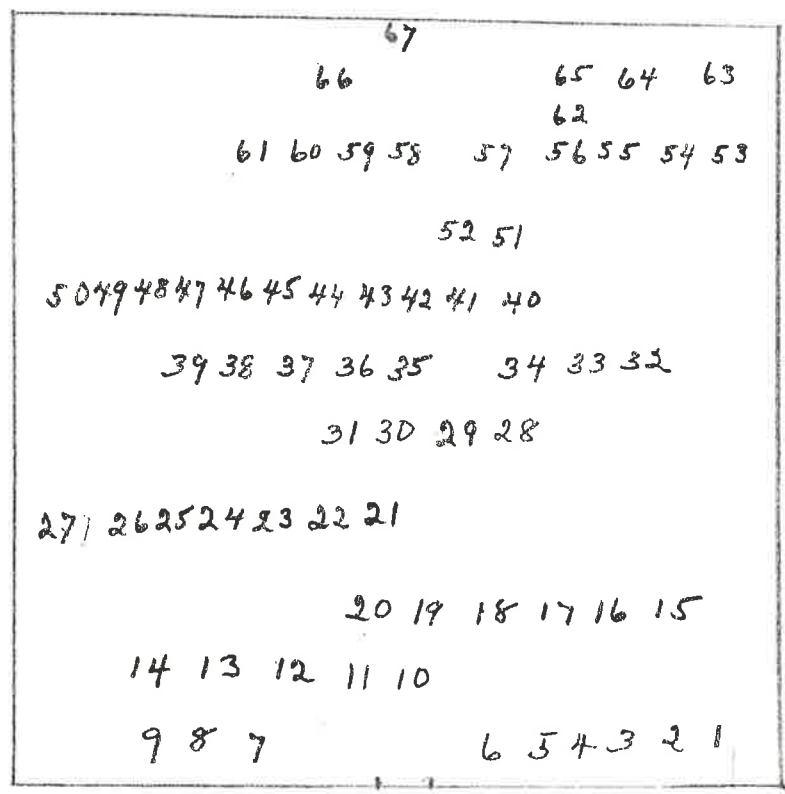 67
66 65 64 63
62
61 60 59 58 57 56 55 54 53
52 51
50 49 48 47 46 45 44 43 42 41 40
39 38 37 36 35 34 33 32
31 30 29 28
27 26 25 24 23 22 21
20 19 18 17 16 15
14 13 12 11 10
9 8 7 6 5 4 3 2 1